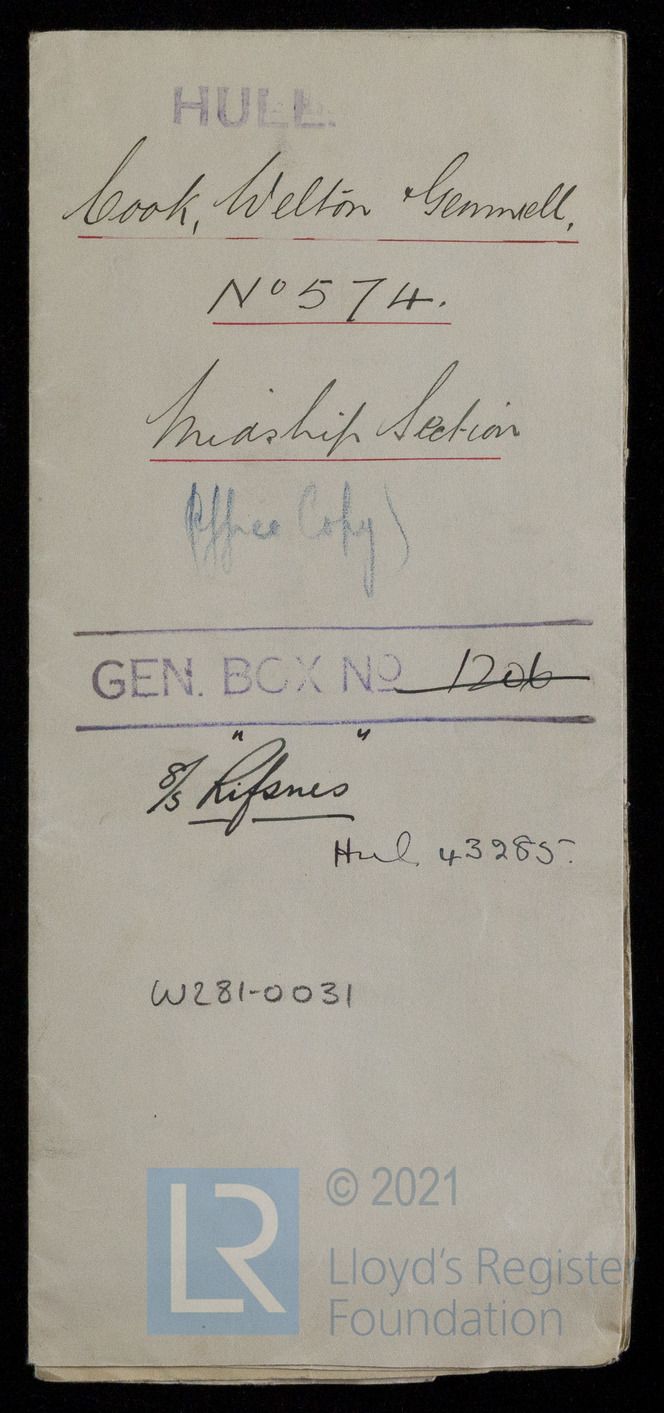 HULL.
Cook, Welton & Gemmell,
No 574.
Midship Section
(Office Copy)
GEN. BOX No 1206
" "
S/S Rifsnes
Hul. 43285.
W281-0031
LR
© 2021
Lloyd's Register
Foundation